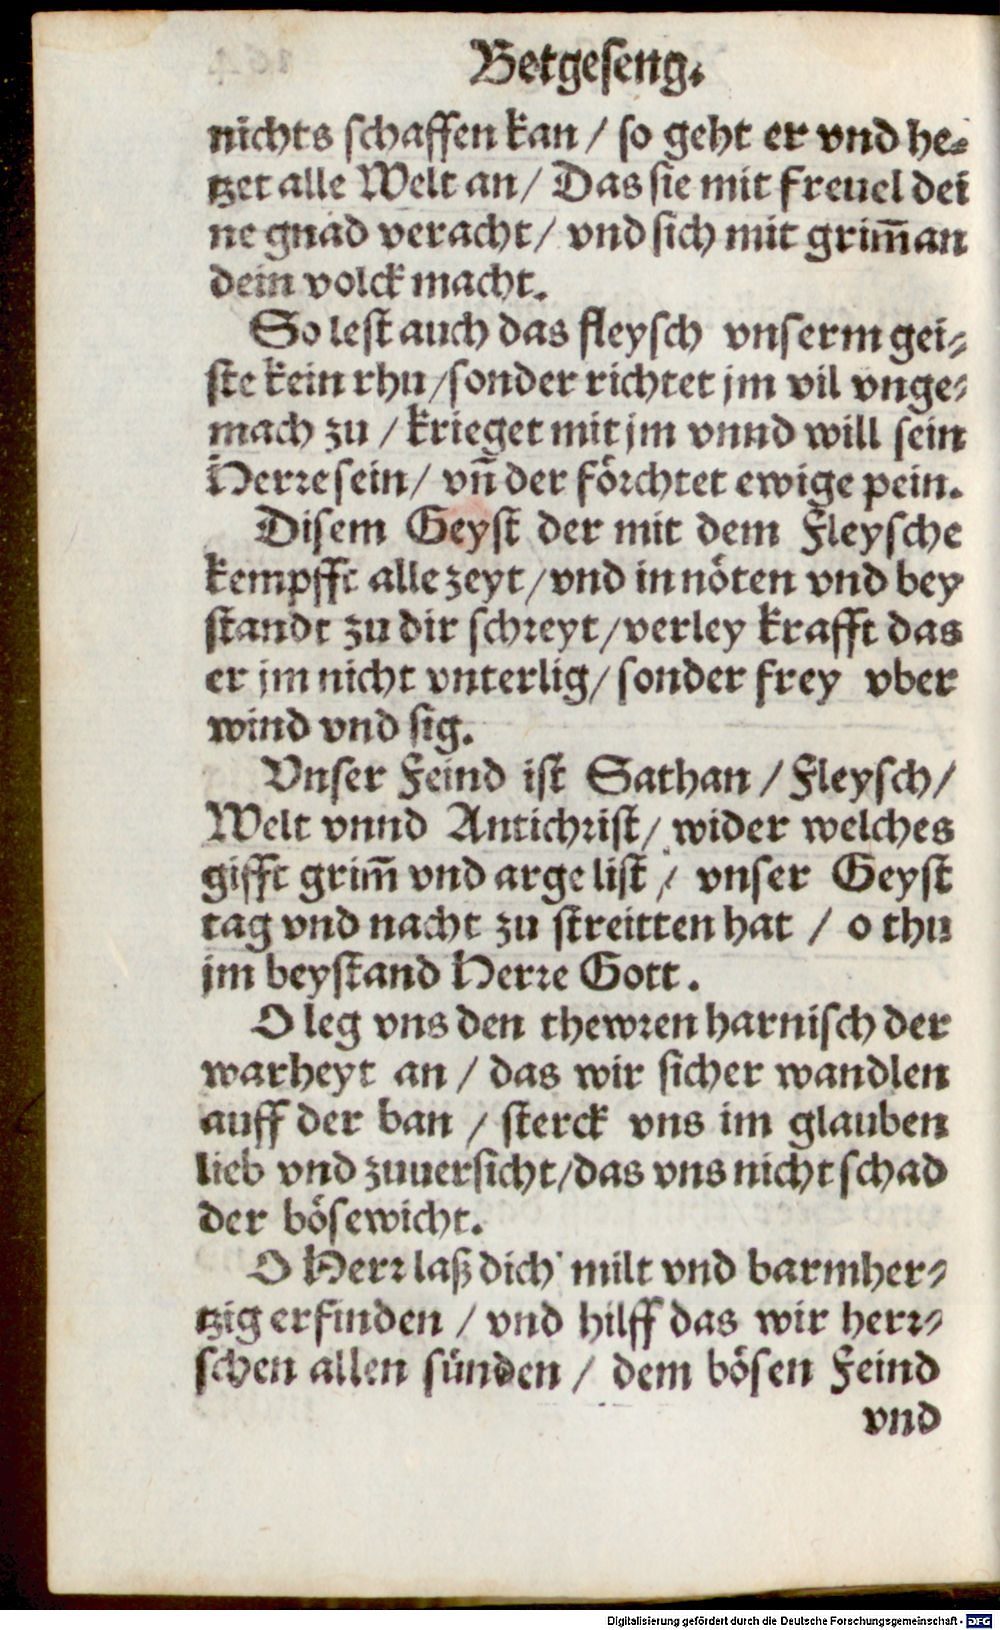 Betgeseng.
nichts schaffen kan / so geht er vnd he⸗
tzet alle Welt an / Das sie mit freuel dei
ne gnad veracht / vnd sich mit grim̄ an
dein volck macht.
So lest auch das fleysch vnserm gei⸗
ste kein rhu / sonder richtet jm vil vnge⸗
mach zu / krieget mit jm vnnd will sein
Herre sein / vn̄ der förchtet ewige pein.
Disem Geyst der mit dem Fleysche
kempfft alle zeyt / vnd in nöten vnd bey
standt zu dir schreyt / verley krafft das
er jm nicht vnterlig / sonder frey vber
wind vnd sig.
Vnser Feind ist Sathan / Fleysch /
Welt vnnd Antichrist / wider welches
gifft grim̄ vnd arge list / vnser Geyst
tag vnd nacht zu streitten hat / o thu
jm beystand Herre Gott.
O leg vns den thewren harnisch der
warheyt an / das wir sicher wandlen
auff der ban / sterck vns im glauben
lieb vnd zuuersicht / das vns nicht schad
der bösewicht.
O Herr laß dich milt vnd barmher⸗
tzig erfinden / vnd hilff das wir herr⸗
schen allen sünden / dem bösen Feind
vnd
Digitalisierung gefördert durch die Deutsche Forschungsgemeinschaft - DFG